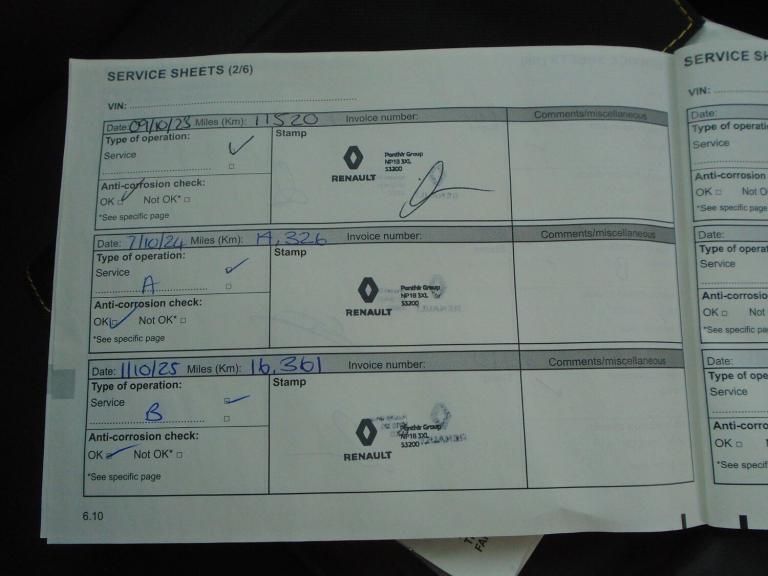 SERVICE SHEETS (2/6)
VIN:
Date: 09/10/23 Miles (Km): 11520 Invoice number: Comments/miscellaneous
Type of operation: Stamp
Service
RENAULT
Ponthir Group
NP18 3XL
53200
Anti-corrosion check:
OK Not OK*
*See specific page
Date: 7/10/24 Miles (Km): 14,326 Invoice number: Comments/miscellaneous
Type of operation: Stamp
Service
A
RENAULT
Ponthir Group
NP18 3XL
53200
Anti-corrosion check:
OK Not OK*
*See specific page
Date: 1/10/25 Miles (Km): 16,361 Invoice number: Comments/miscellaneous
Type of operation: Stamp
Service
B
RENAULT
Ponthir Group
NP18 3XL
53200
Anti-corrosion check:
OK Not OK*
*See specific page
6.10
SERVICE SH
VIN:
Date:
Type of operati
Service
Anti-corrosio
OK Not O
*See specific page
Date:
Type of operat
Service
Anti-corrosio
OK Not
*See specific pag
Date:
Type of ope
Service
Anti-corro
OK
*See specif